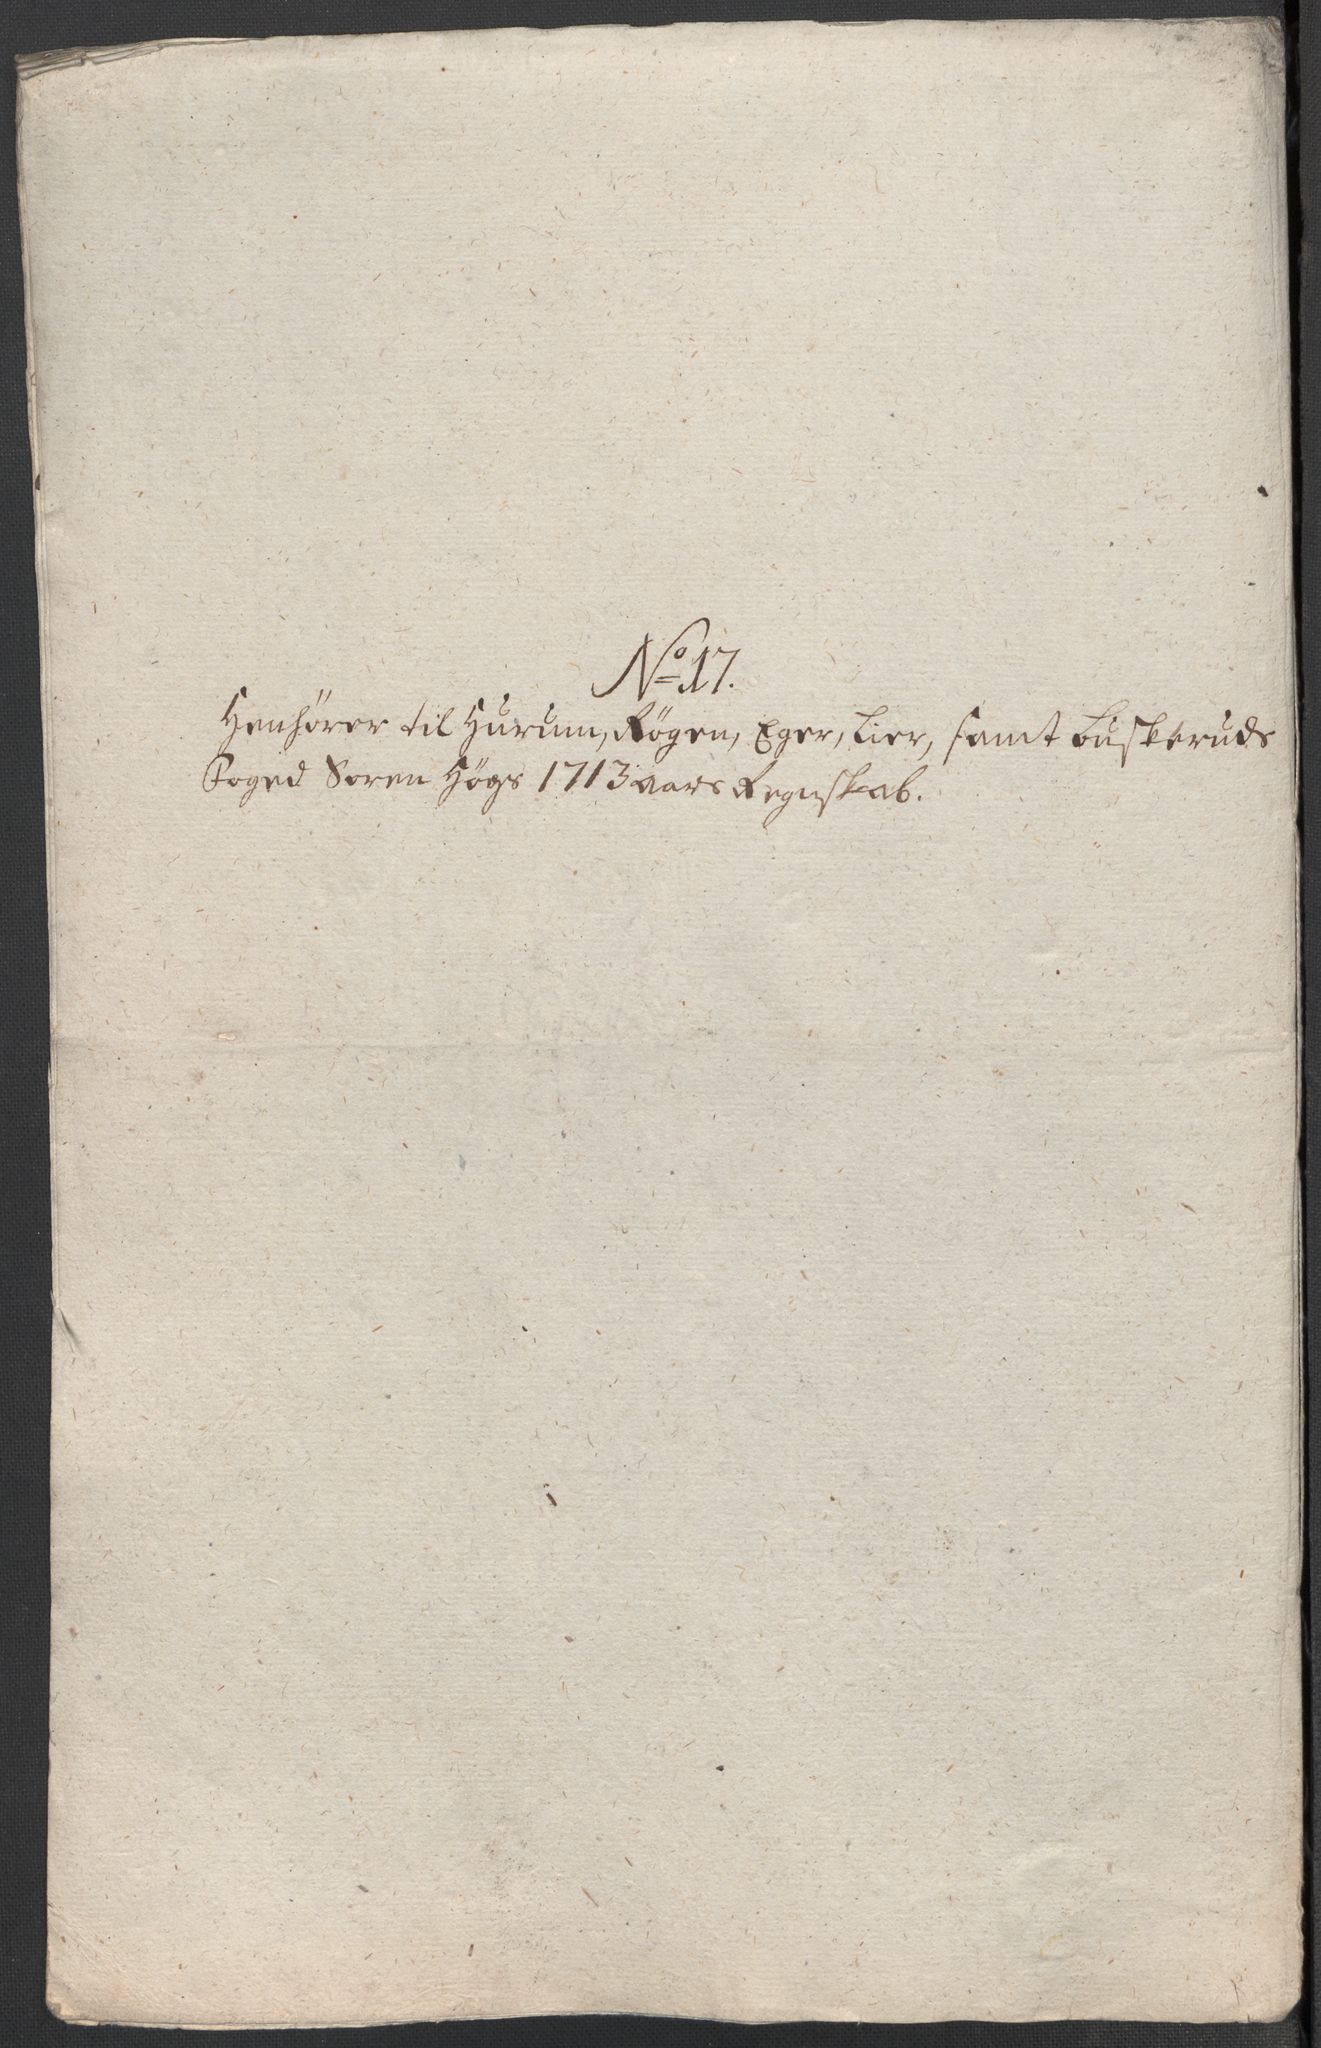 No 17.
Henhörer til Hurum, Rögen, Eger, Lier, samt Buskeruds
Foged Søren Högs 1713 aars Regnskab.